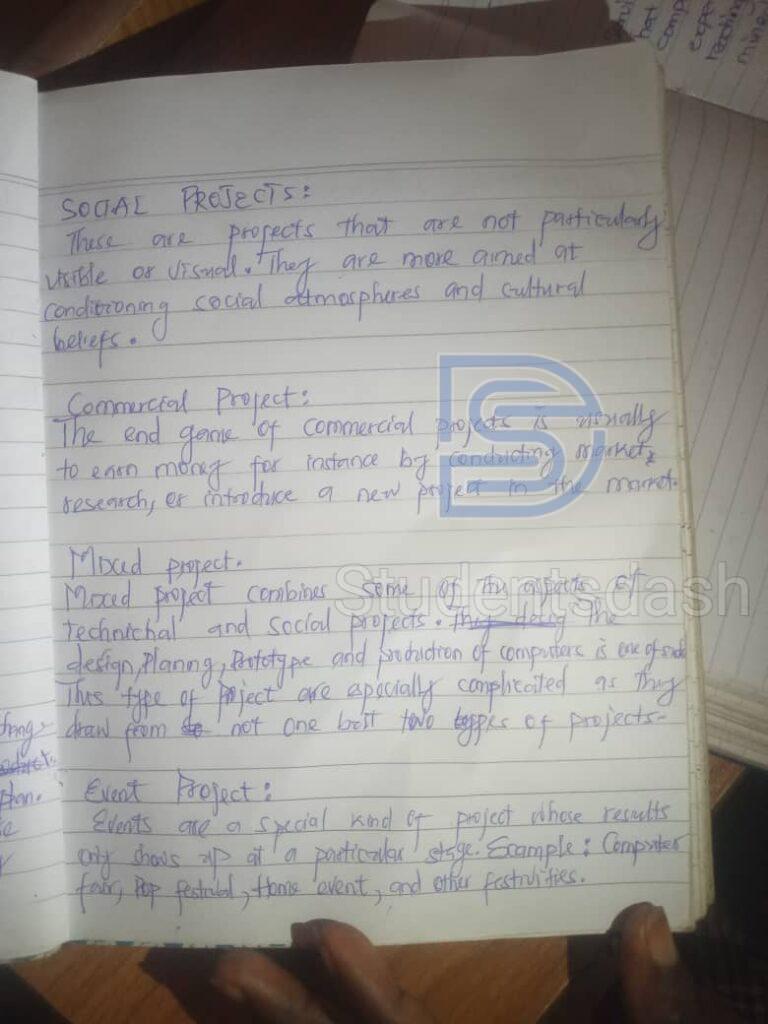 SOCIAL PROJECTS:
These are projects that are not particularly
visible or visual. They are more aimed at
conditioning social atmospheres and cultural
beliefs.
Commercial Project:
The end game of commercial projects is usually
to earn money for instance by conducting market
research, or introduce a new project in the market.
Mixed project.
Mixed project combines some of the aspects of
technichal and social projects. The
design, Planing, Prototype and production of computers is one of such
This type of Project are especially complicated as they
draw from not one but two types of projects-
Event Project:
Events are a special kind of project whose results
only shows up at a particular stage. Example: Computer
fair, Pop festival, Home event, and other festivities.
Studentsdash